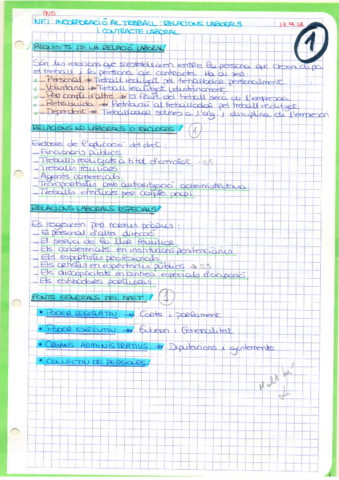 NF1. INCORPORACIÓ AL TREBALL: RELACIONS LABORALS
I CONTRACTE LABORAL
17.9.18
1
REQUISITS DE LA RELACIÓ LABORAL
Són les relacions que s'estableixen entre la persona que desenvolupa
el treball i la persona que contracta. Ha de ser:
- Personal → Treball realitzat pel treballador personalment
- Voluntària → Treball realitzat voluntàriament
- Per compte d'altre → El fruit del treball serà de l'empresari
- Retribuïda → Retribució al treballador pel treball realitzat
- Dependent → Treballador sotmès a l'org. i disciplina de l'empresari
RELACIONS NO LABORALS O EXCLOSES 1
Excloses de l'aplicació del dret
- Funcionaris públics
- Treballs realitzats a títol d'amistat -0,5
- Treballs familiars
- Agents comercials
- Transportistes amb autorització administrativa
- Treballs efectuats per compte propi
RELACIONS LABORALS ESPECIALS
Es regeixen per normes pròpies
- El personal d'alta direcció
- El servei de la llar familiar
- Els condemnats en institucions penitenciàries
- Els esportistes professionals
- Els artistes en espectacles públics → 0,5
- Els discapacitats en centres especials d'ocupació
- Els estibadors portuaris
FONTS GENERALS DEL DRET 1
• PODER LEGISLATIU → Corts i parlament
• PODER EXECUTIU → Govern i Generalitat
• ORGANS ADMINISTRATIUS → Diputacions i ajuntaments
• COL·LECTIU DE PERSONES
Molt bé!